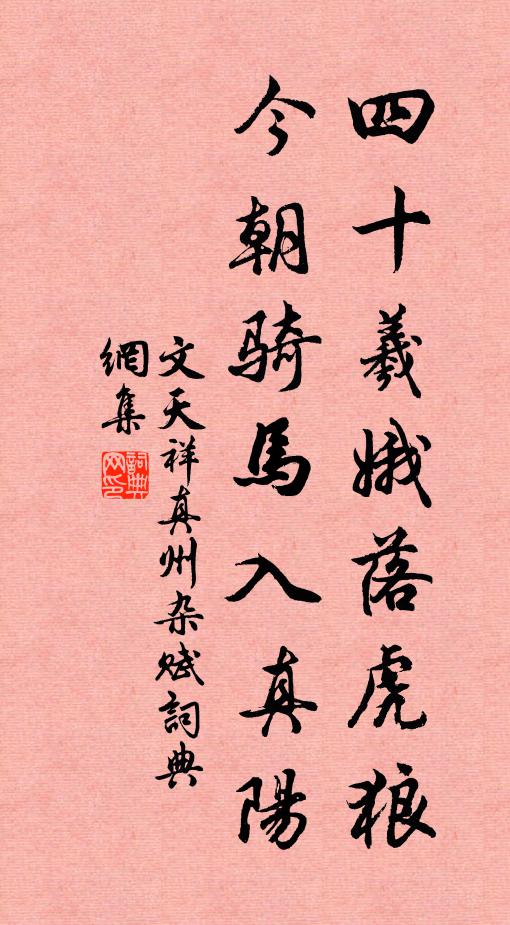 四十羲娥落虎狼
今朝騎馬入真陽
文天祥真州杂赋詞典
網集
詞典网印